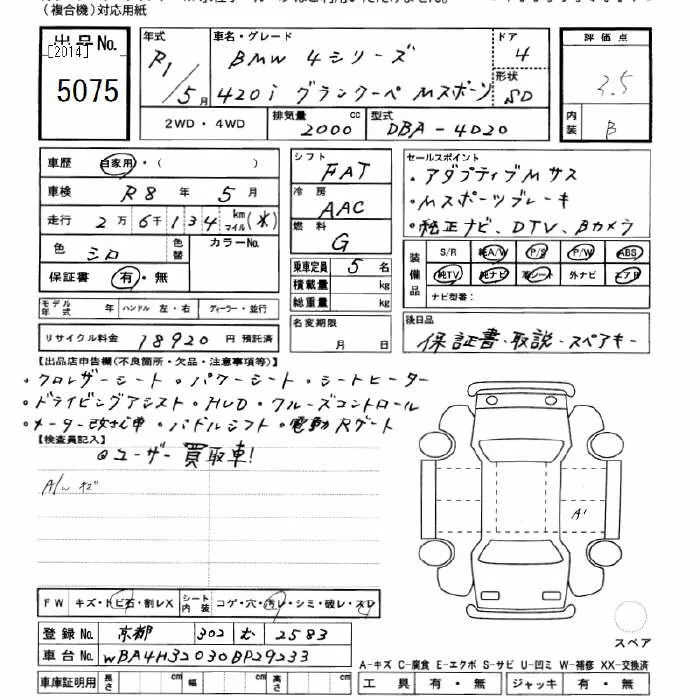 （複合機）対応用紙
出品No.
[2014]
5075
年式
R1/5月
車名・グレード
BMW 4シリーズ
420i グランクーペ Mスポーツ
ドア
4
形状
SD
評価点
3.5
内装
B
2WD・4WD
排気量 2000 cc
型式 DBA-4D20
車歴 自家用・( )
車検 R8年 5月
走行 2万6千134 km マイル (米)
色 シロ
色替
カラーNo.
保証書 有・無
シフト FAT
冷房 AAC
燃料 G
乗車定員 5名
積載量 kg
総重量 kg
名変期限
月 日
セールスポイント
・アダプティブMサス
・Mスポーツブレーキ
・純正ナビ、DTV、Bカメラ
装備品
S/R 純A/W P/S P/W ABS
純TV 純ナビ 革シート 外ナビ エアB
ナビ型番：
モデル年式 年 ハンドル 左・右 ディーラー・並行
リサイクル料金 18920 円 預託済
後日品
保証書・取説・スペアキー
【出品店申告欄(不良箇所・欠品・注意事項等)】
・クロレザーシート ・パワーシート ・シートヒーター
・ドライビングアシスト ・HUD ・クルーズコントロール
・メーター改ざ車 ・パドルシフト ・電動Rゲート
【検査員記入】
@ユーザー買取車!
A/W キズ
A1
FW キズ・トビ石・割レX シート内装 コゲ・穴・汚レ・シミ・破レ・スレ
登録No. 京都 302 む 2583
車台No. WBA4H32030BP29233
車庫証明用 長さ cm 幅 cm 高さ cm
スペア
A-キズ C-腐食 E-エクボ S-サビ U-凹ミ W-補修 XX-交換済
工具 有・無 ジャッキ 有・無